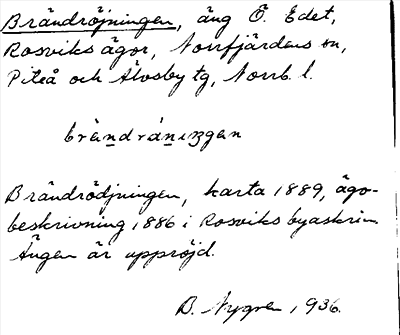 Brändröjningen, äng Ö. Edet,
Rosviks ägor, Norrfjärdens sn,
Piteå och Älvsby tg, Norrb. l.
brändränıŋgen
Brändrödjningen, karta 1889, ägo-
beskrivning 1886 i Rosviks byaskrin
Ängen är uppröjd.
B. Nygren, 1936.